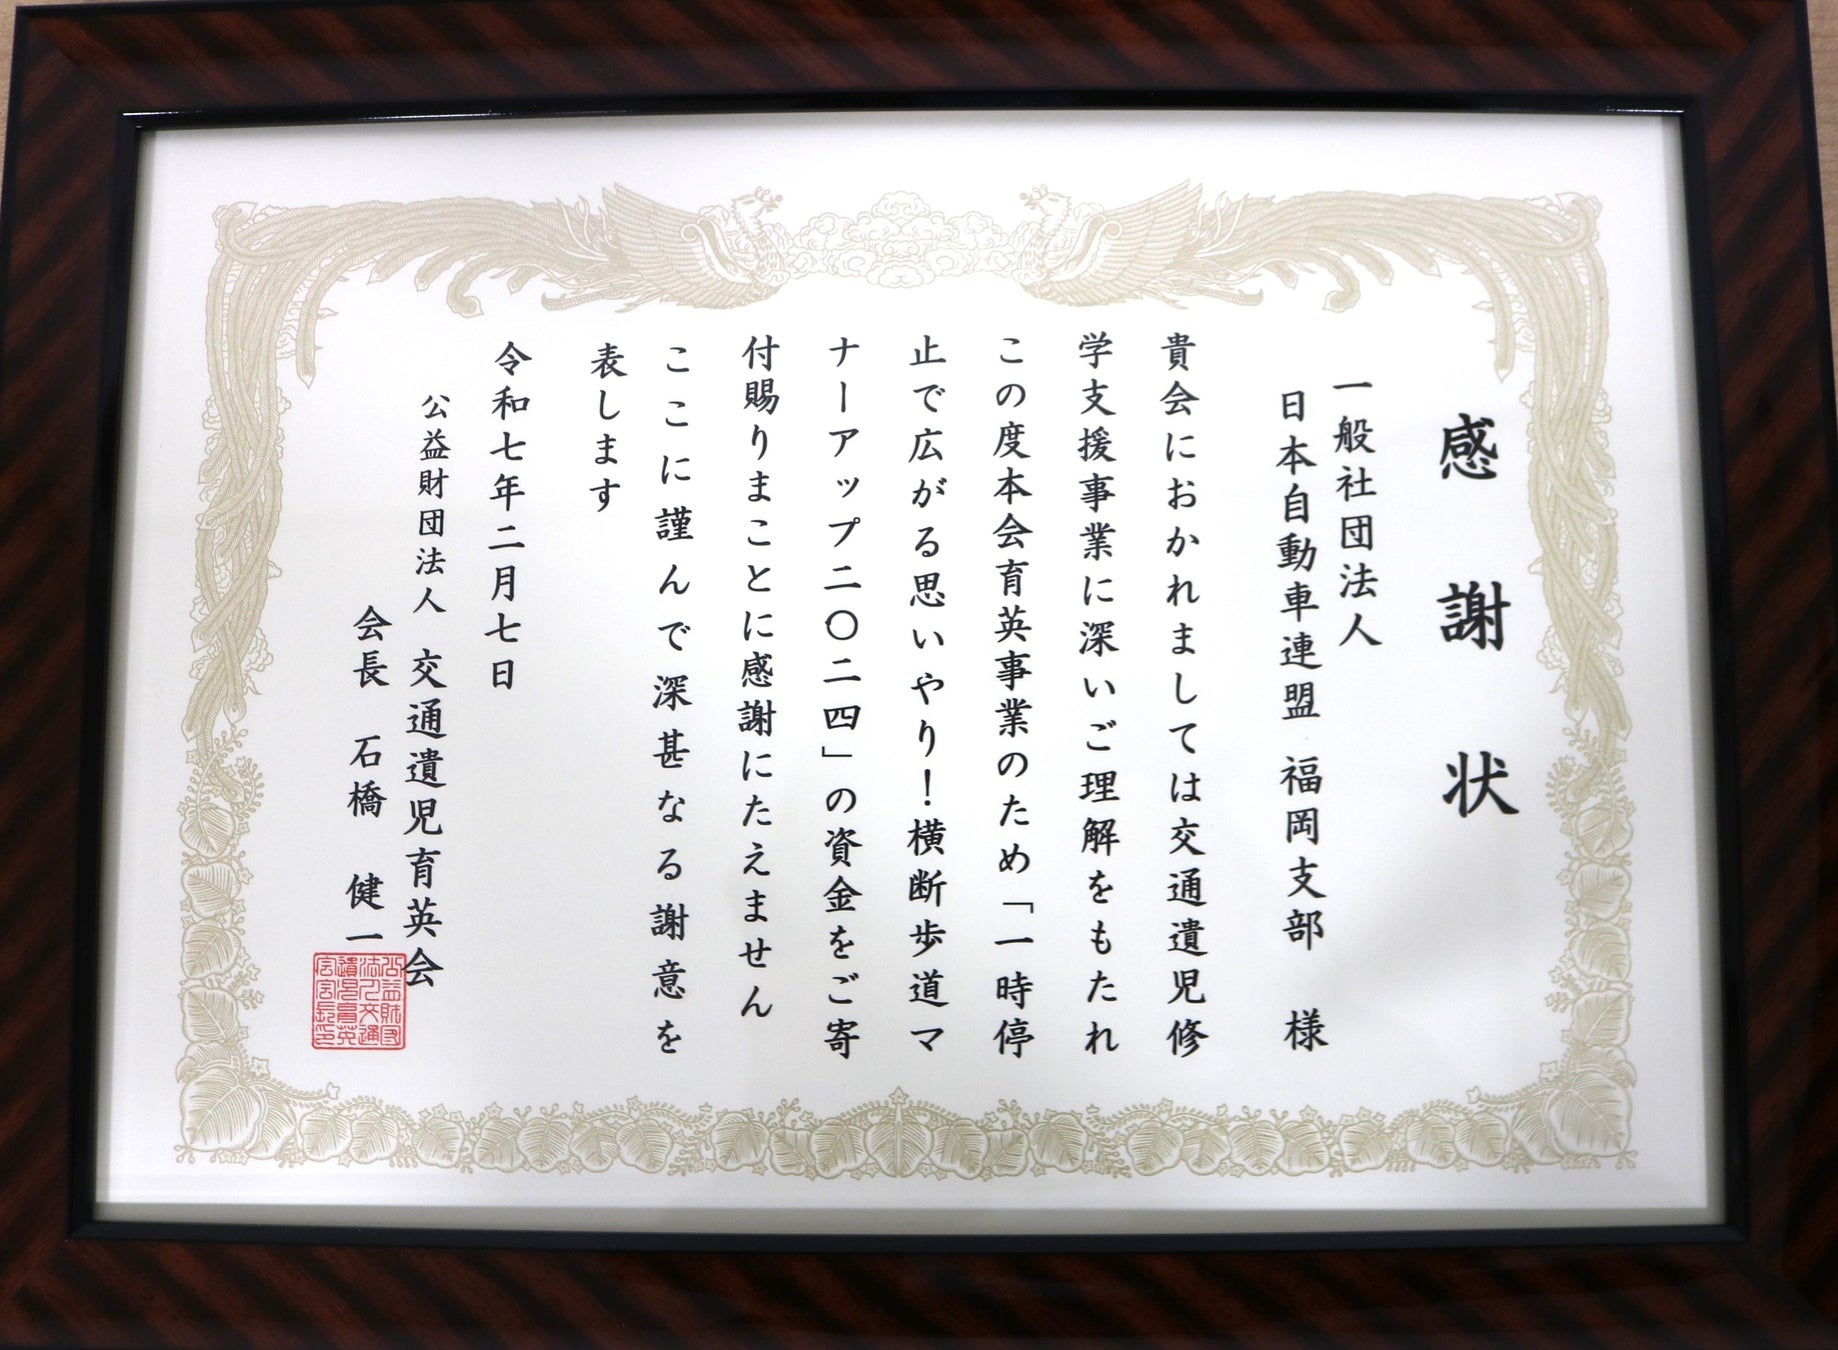 感謝状
一般社団法人
日本自動車連盟 福岡支部 様
貴会におかれましては交通遺児修
学支援事業に深いご理解をもたれ
この度本会育英事業のため「一時停
止で広がる思いやり！横断歩道マ
ナーアップ二〇二四」の資金をご寄
付賜りまことに感謝にたえません
ここに謹んで深甚なる謝意を
表します
令和七年二月七日
公益財団法人 交通遺児育英会
会長 石橋 健一
公益財団
法人交通
遺児育英
会会長印